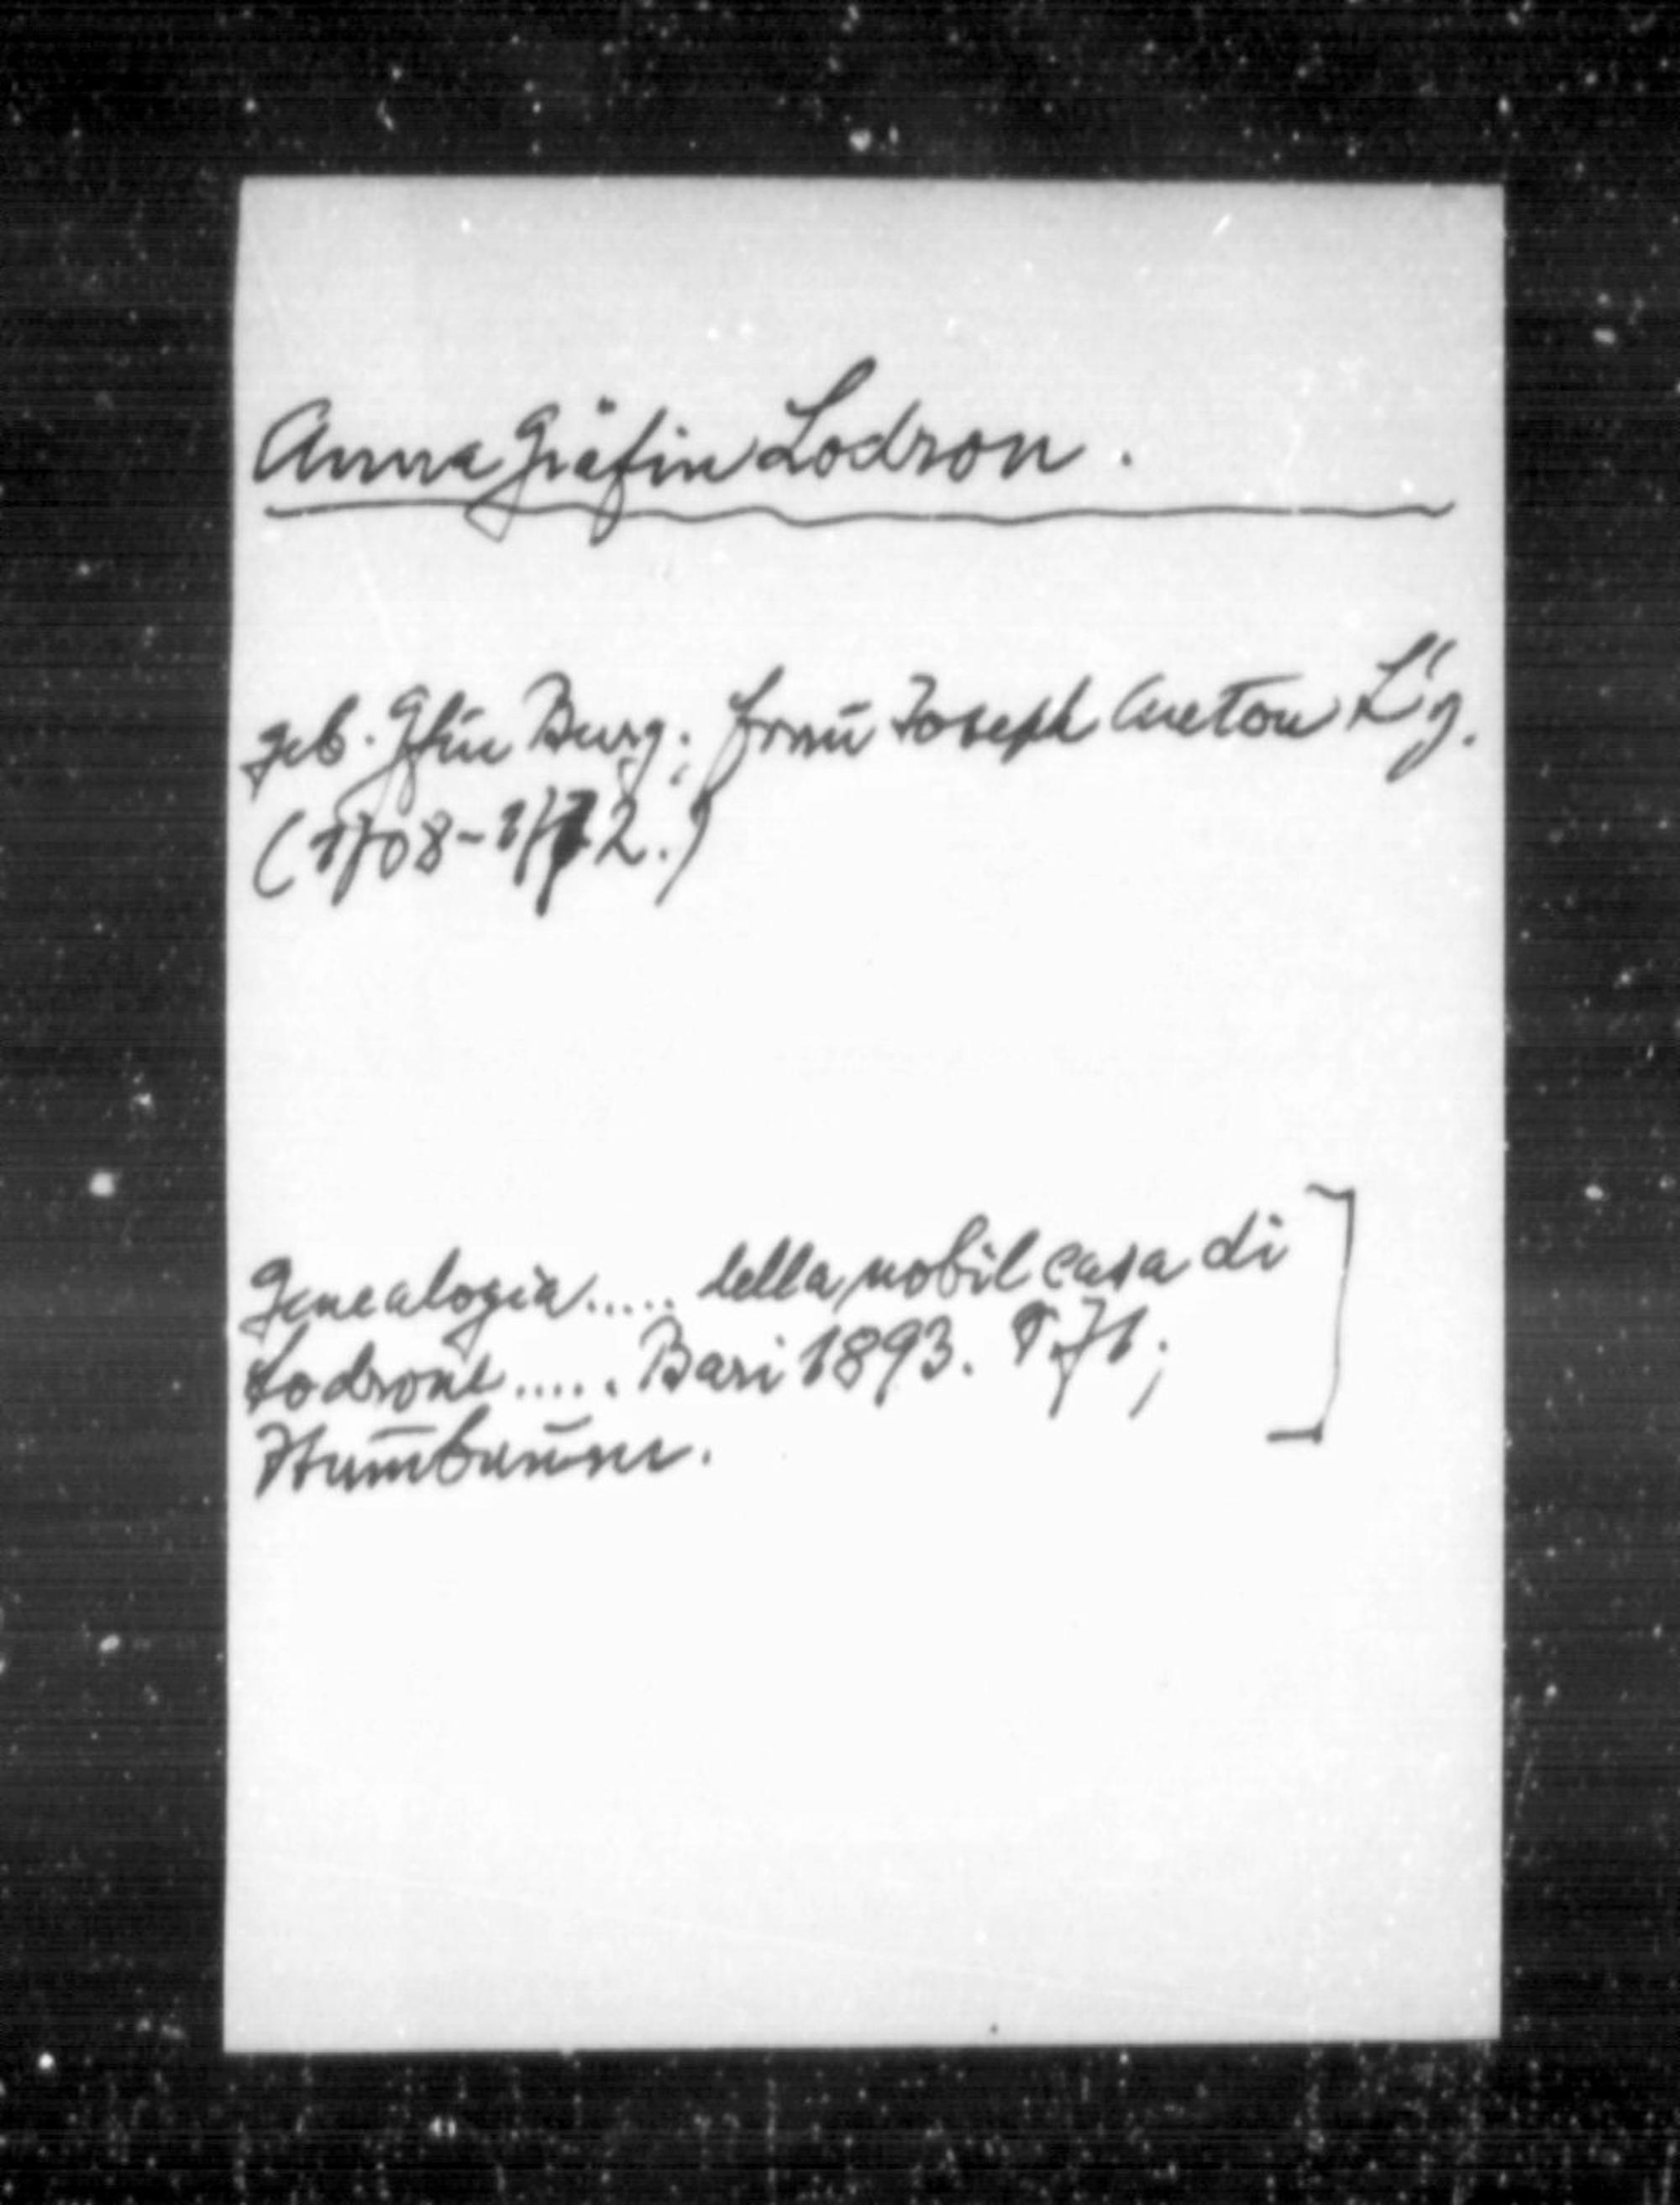 Anna Gräfin Lodron.
geb. Gfin Burg; Frau Joseph Anton L's.
(1708-1772.)
Genealogia..... della nobil casa di
Lodrone..... Bari 1893. T. 71;
Stammbaum.